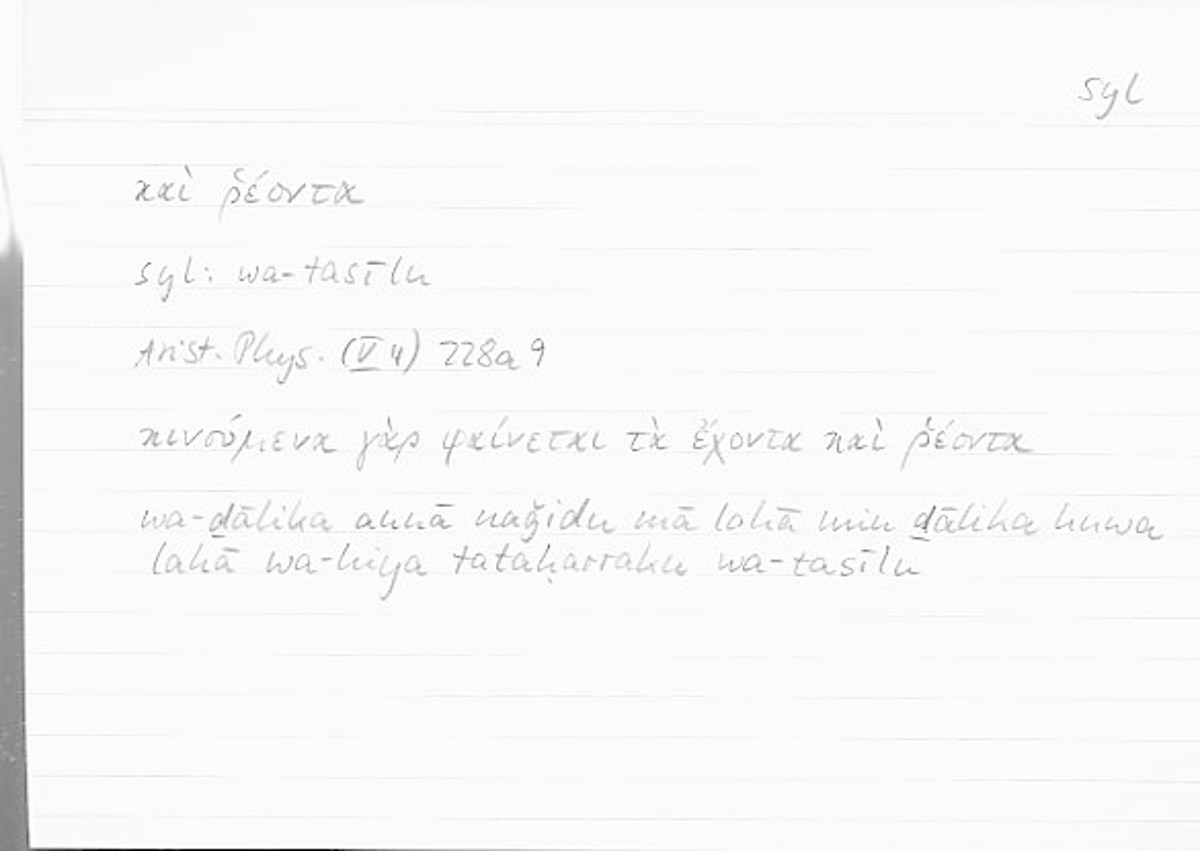 syl
καὶ ῥέοντα
syl: wa-tasīlu
Arist. Phys. (V 4) 228a9
κινούμενα γὰρ φαίνεται τὰ ἔχοντα καὶ ῥέοντα
wa-ḏālika annā naǧidu mā lahā min ḏālika huwa
lahā wa-hiya tataḥarraku wa-tasīlu